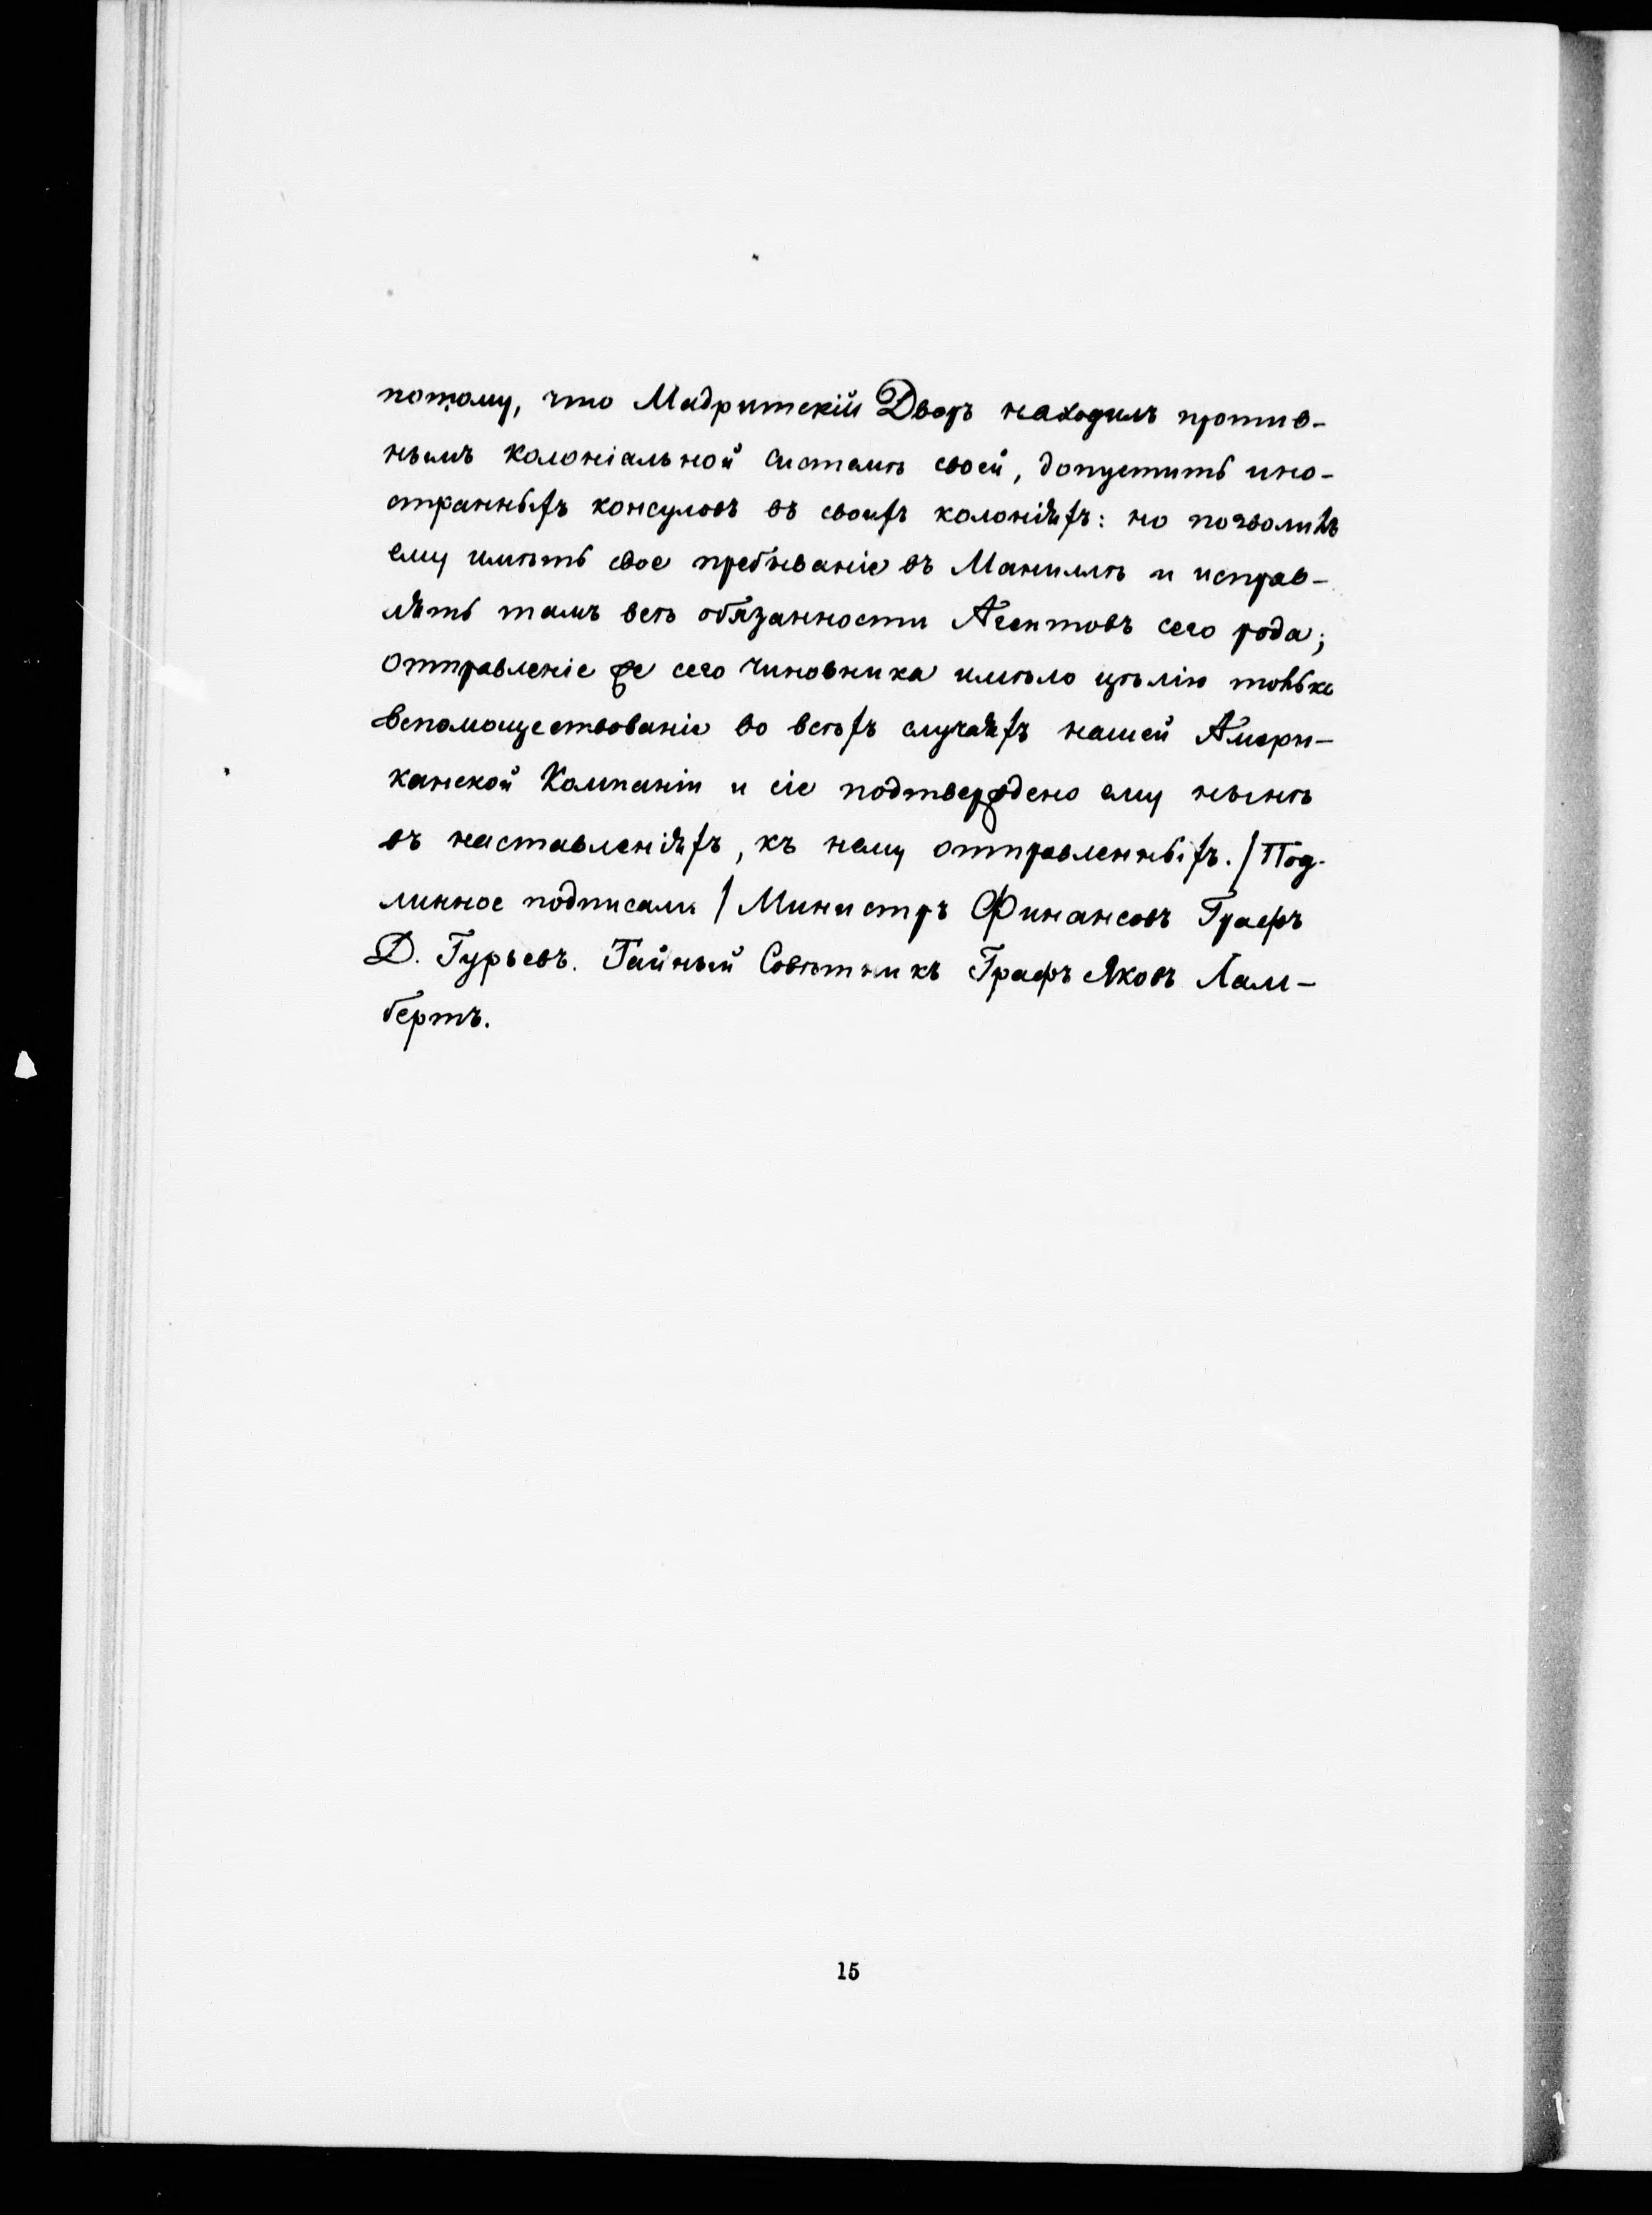 потому, что Мадритскій Дворъ находилъ против-
нымъ колоніальной системѣ своей, допустить ино-
странныхъ консуловъ въ своихъ колоніяхъ: но позволилъ
ему имѣть свое пребываніе въ Маниллѣ и исправ-
лять тамъ всѣ обязанности Агентовъ сего рода;
отправленіе же сего чиновника имѣло цѣлію только
вспомоществованіе во всѣхъ случаяхъ нашей Амери-
канской Компаніи и сіе подтверждено ему нынѣ
въ наставленіяхъ, къ нему отправленныхъ. / Под-
линное подписали / Министръ Финансовъ Графъ
Д. Гурьевъ. Тайный Совѣтникъ Графъ Яковъ Лам-
бертъ.
15